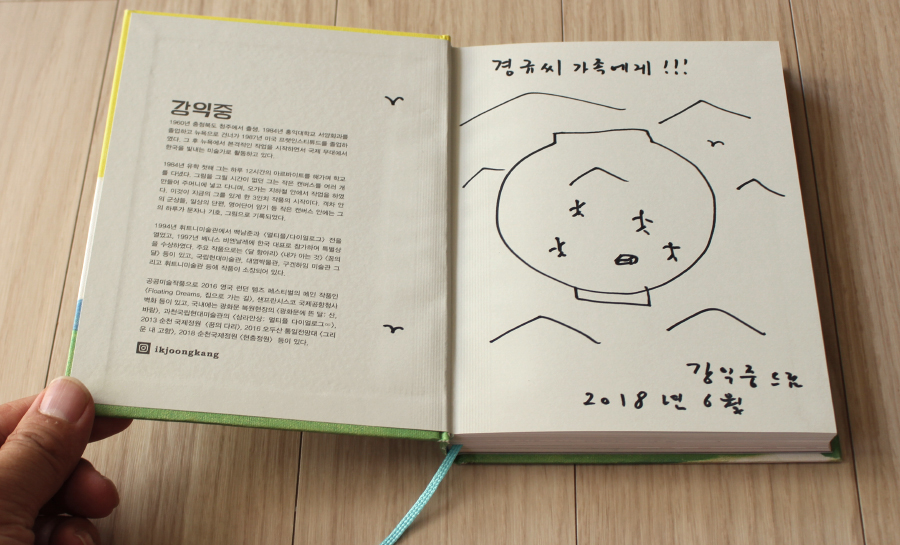 강익중
1960년 충청북도 청주에서 출생, 1984년 홍익대학교 서양화과를
졸업하고 뉴욕으로 건너가 1987년 미국 프랫인스티튜트를 졸업하
였다. 그 후 뉴욕에서 본격적인 작업을 시작하면서 국제 무대에서
한국을 빛내는 미술가로 활동하고 있다.
1984년 유학 첫해 그는 하루 12시간의 아르바이트를 해가며 학교
를 다녔다. 그림을 그릴 시간이 없던 그는 작은 캔버스를 여러 개
만들어 주머니에 넣고 다니며, 오가는 지하철 안에서 작업을 하였
다. 이것이 지금의 그를 있게 한 3인치 작품의 시작이다. 객차 안
의 군상들, 일상의 단편, 영어단어 암기 등 작은 캔버스 안에는 그
의 하루가 문자나 기호, 그림으로 기록되었다.
1994년 휘트니미술관에서 백남준과 〈멀티플/다이얼로그〉 전을
열었고, 1997년 베니스 비엔날레에 한국 대표로 참가하여 특별상
을 수상하였다. 주요 작품으로는 〈달 항아리〉 〈내가 아는 것〉 〈꿈의
달〉 등이 있고, 국립현대미술관, 대영박물관, 구겐하임 미술관 그
리고 휘트니미술관 등에 작품이 소장되어 있다.
공공미술작품으로 2016 영국 런던 템즈 페스티벌의 메인 작품인
〈Floating Dreams, 집으로 가는 길〉, 샌프란시스코 국제공항청사
벽화 등이 있고, 국내에는 광화문 복원현장의 〈광화문에 뜬 달: 산,
바람〉, 과천국립현대미술관의 〈삼라만상: 멀티플 다이얼로그∞〉,
2013 순천 국제정원 〈꿈의 다리〉, 2016 오두산 통일전망대 〈그리
운 내 고향〉, 2018 순천국제정원 〈현충정원〉 등이 있다.
ikjoongkang
경규씨 가족에게 !!!
강익중 드림
2018년 6월